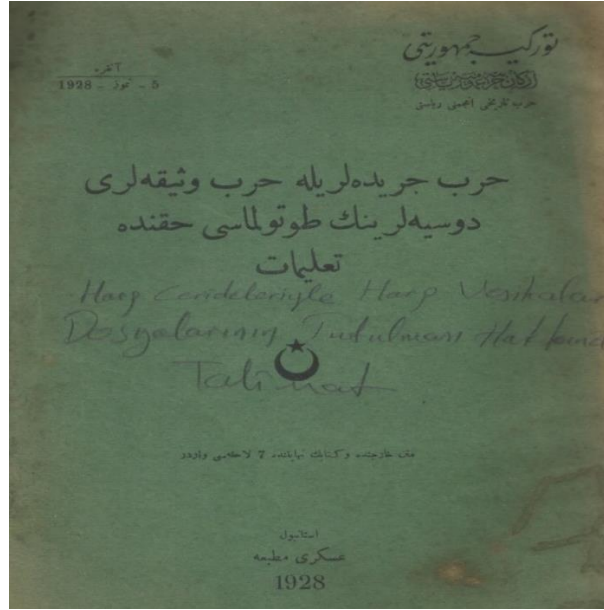 توركيه جمهوريتی
اركان حربيه عموميه رياستی
حرب تاريخی انجمنی رياستی
آنقره
5 - تموز - 1928
حرب جريده‌لريله حرب وثيقه‌لری
دوسيه‌لرينك طوتولماسی حقنده
تعليمات
Harp Cerideleriyle Harp Vesikaları
Dosyalarının Tutulması Hakkında
Talimat
متن خارجنده و كتابك نهايتنده 7 لاحقه‌سی واردر
استانبول
عسكری مطبعه
1928